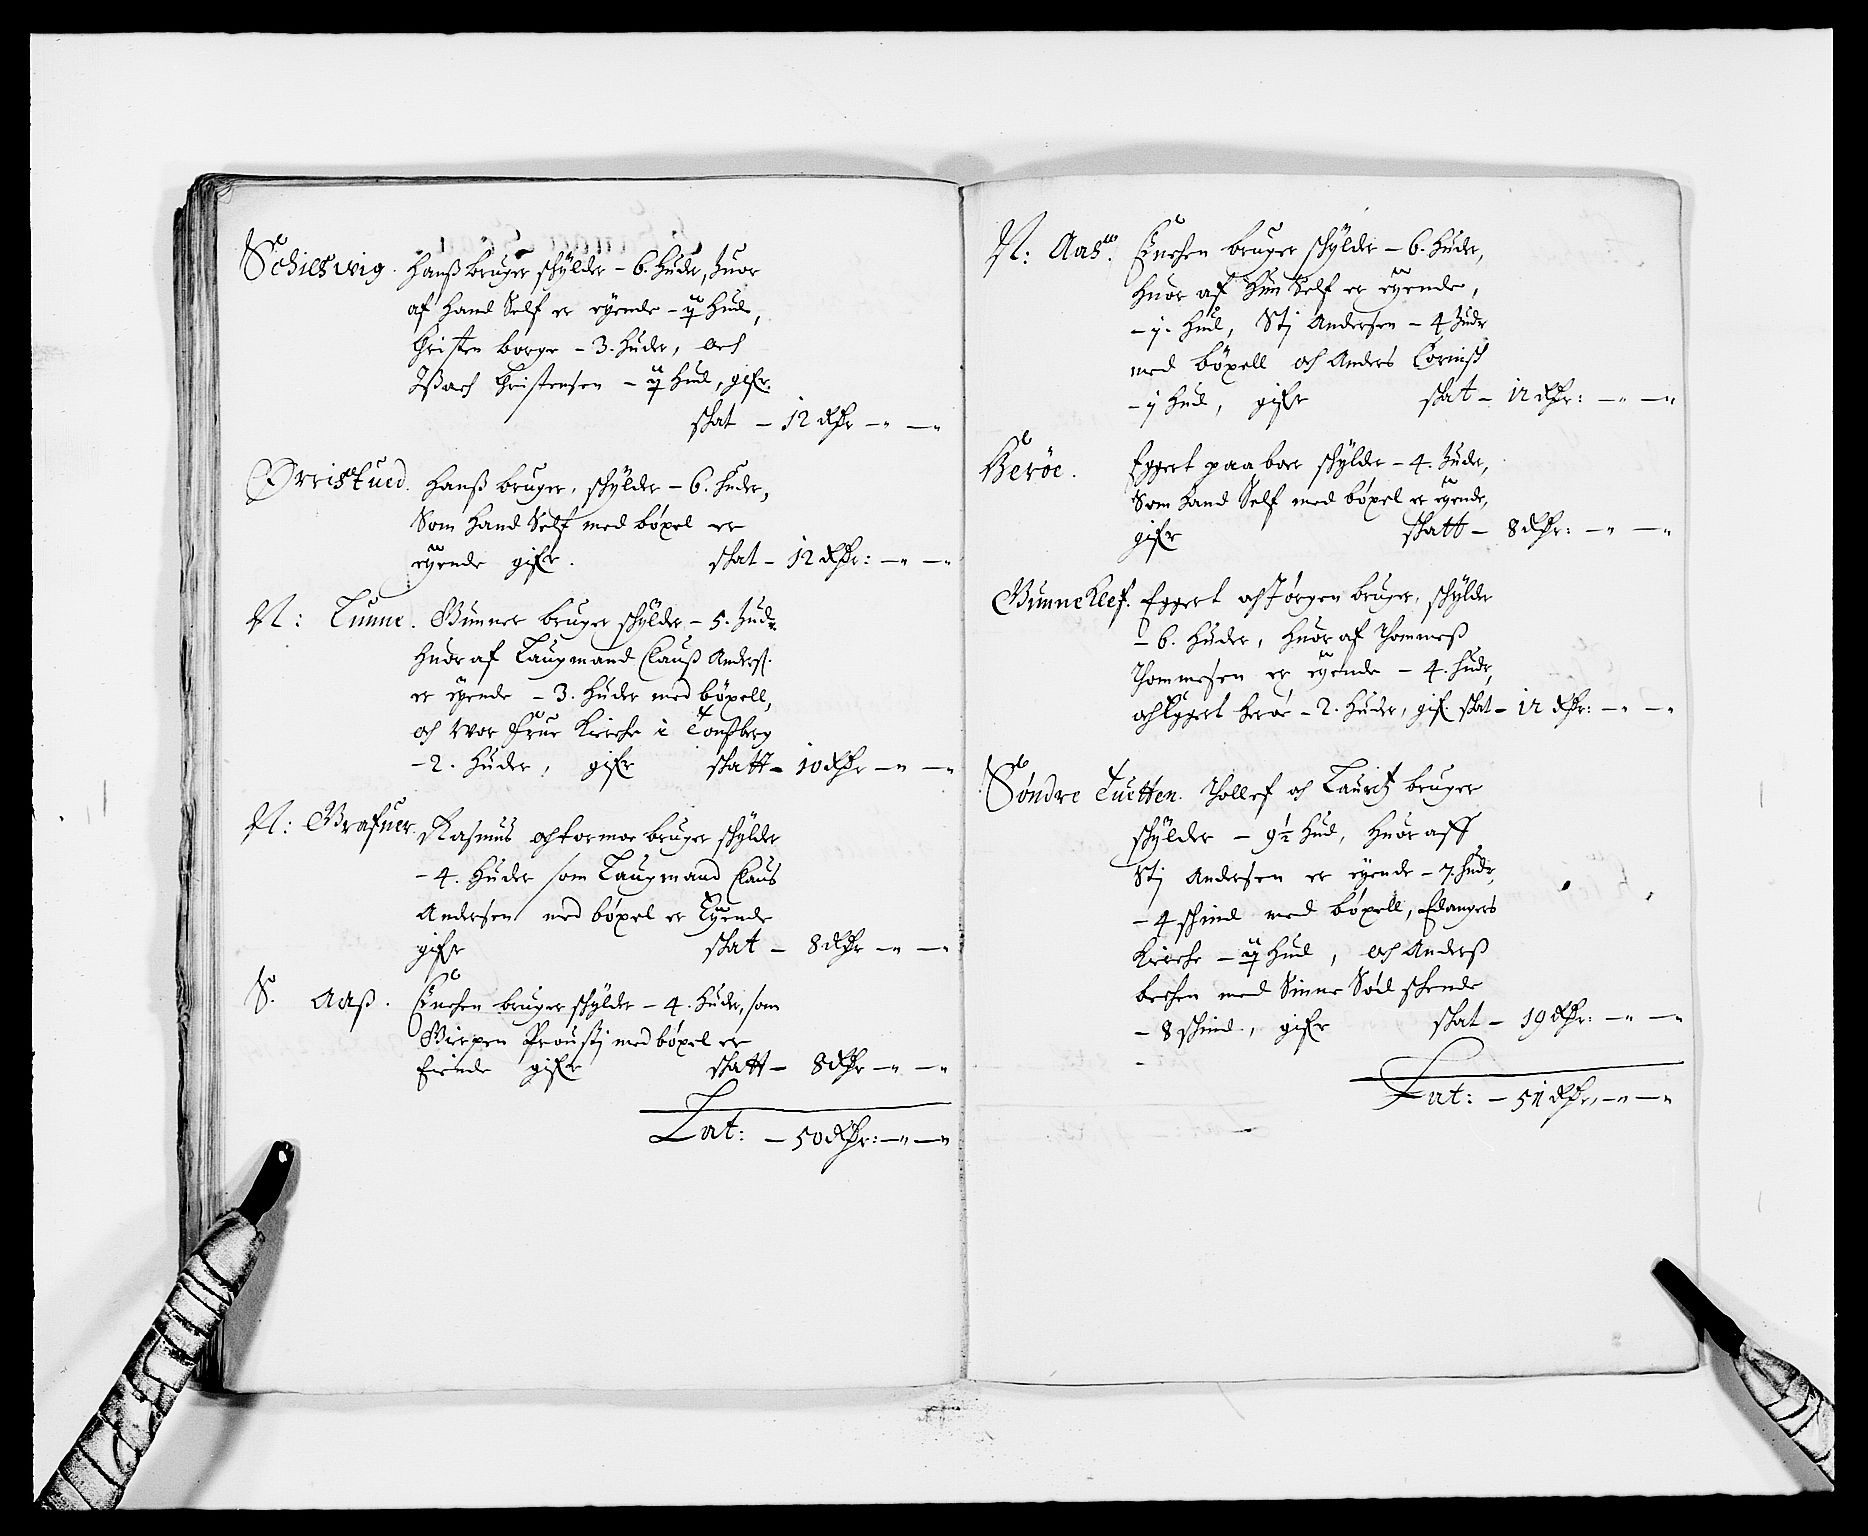 Schiesvig. Hanß bruger schylder - 6. Huder, huor
af Hand Self er eyende - Hud,
Christen borge - 3. Huder, och
Christensen - Hud, gifr.
skat - 12 Rdr - " - "
Ørristued. Hanß bruger, schylder - 6. huder,
Som Hand Self med böxel er
eyende gifr. skat - 12 Rdr: - " - "
N: Tunne. Gunner bruger schylder - 5. huder
Huoraf Laugmand Clauß Anderß.
er eyende - 3. Huder med böxell,
och Vor Frue Kirche i Tonßberg
- 2. Huder, gifr skatt - 10 Rdr - " - "
N: Grafuer. Rasmus och tormoe bruger schylder
- 4. Huder som Laugmand Claus
Andersen med böxel er Eyende
gifr skat - 8 Rdr - " - "
S. Aaß. Enchen bruger schylder - 4. Huder, som
med böxel er
Eiende gifr skatt - 8 Rdr - " - "
Lat: - 50 Rdr: - " - "
N: Aas. Enchen bruger schylder - 6. Huder,
Huor af Hun Self er eyende,
- j. Hud, Stj Andersen - 4 huder
med böxell och Anders
- j Hud, gifr skat - 12 Rdr: - " - "
Heröe. Eggert paaboer schylder - 4. huder,
Som hand Self med böxel er eyende,
gifr skatt - 8 Rdr: - " - "
Gunneklef. Eggert och Jörgen bruger, schylder
- 6. Huder, Huor af Thommeß
Thommesen er eyende - 4. hudr,
och Eggert Heröe - 2. Huder, gif. skat - 12 Rdr: - " - "
Søndre Tuetten. Tollef och Lauritz bruger
schylder - 9½ Hud, Huor aff
Stj Andersen er eyende - 7. hudr,
- 4 schind med böxell, Edangers
Kirche - Hud, och Anderß
med Sinne Sødschende
- 8 schind, gifr skat - 19 Rdr: - " - "
Lat: - 51 Rdr, - " - "